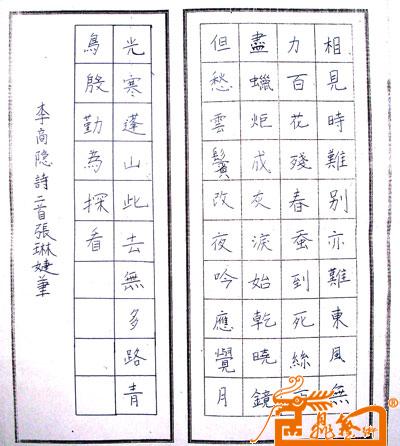 相見時難別亦難東風無
力百花殘春蚕到死絲
盡蠟炬成灰淚始乾曉鏡
但愁雲鬢改夜吟應覺月
光寒蓬山此去無多路青
鳥殷勤為探看
李商隐詩一首張琳婕筆